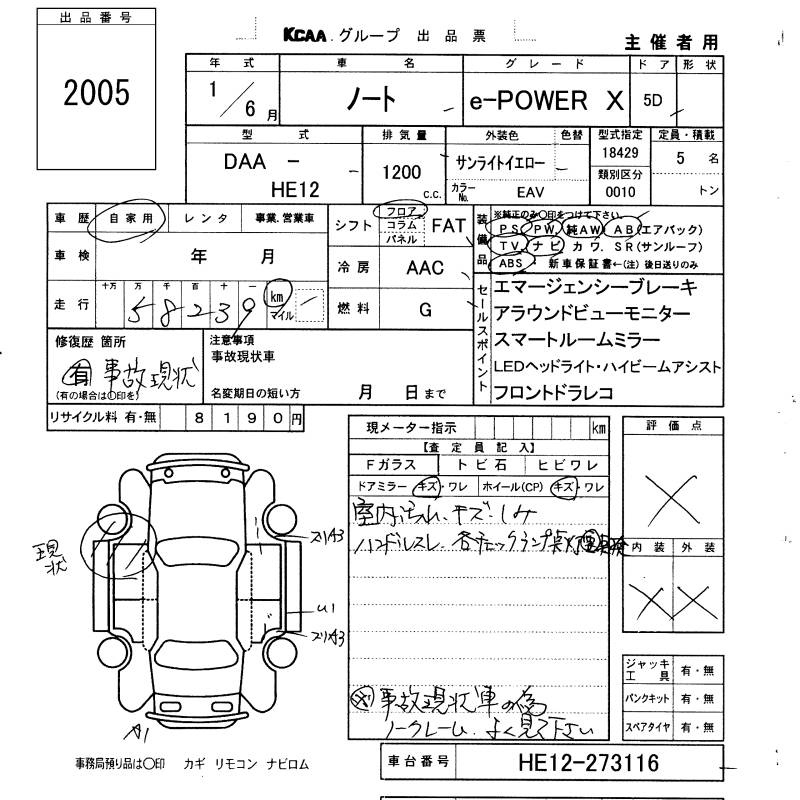 出品番号
2005
KCAA グループ 出品票
主催者用
年式 車名 グレード ドア 形状
1/6月 ノート e-POWER X 5D
型式 排気量 外装色 色替 型式指定 定員・積載
DAA - HE12 1200 C.C. サンライトイエロー 18429 5 名
カラーNo. EAV 類別区分 0010 トン
車歴 自家用 レンタ 事業.営業車
シフト フロア コラム パネル FAT
装備品 ※純正のみ○印をつけて下さい。
PS PW 純AW AB(エアバック)
TV ナビ カワ SR(サンルーフ)
ABS 新車保証書←(注) 後日送りのみ
車検 年 月
冷房 AAC
走行 十万 万 千 百 十 一
58239 km マイル
燃料 G
セールスポイント
エマージェンシーブレーキ
アラウンドビューモニター
スマートルームミラー
LEDヘッドライト・ハイビームアシスト
フロントドラレコ
修復歴 箇所
有 事故現状
(有の場合は○印を)
注意事項
事故現状車
名変期日の短い方 月 日まで
リサイクル料 有・無 8190円
現メーター指示 km
【査定員記入】
Fガラス トビ石 ヒビワレ
ドアミラー キズ・ワレ ホイール(CP) キズ・ワレ
室内汚れ、キズ、シミ
ハンドルスレ 各チェックランプ点灯
※事故現状車の為
ノークレーム、よく見て下さい
評価点
内装 外装
ジャッキ工具 有・無
パンクキット 有・無
スペアタイヤ 有・無
現状
スリキA3
U1
スリキA3
A1
事務局預り品は○印 カギ リモコン ナビロム
車台番号 HE12-273116